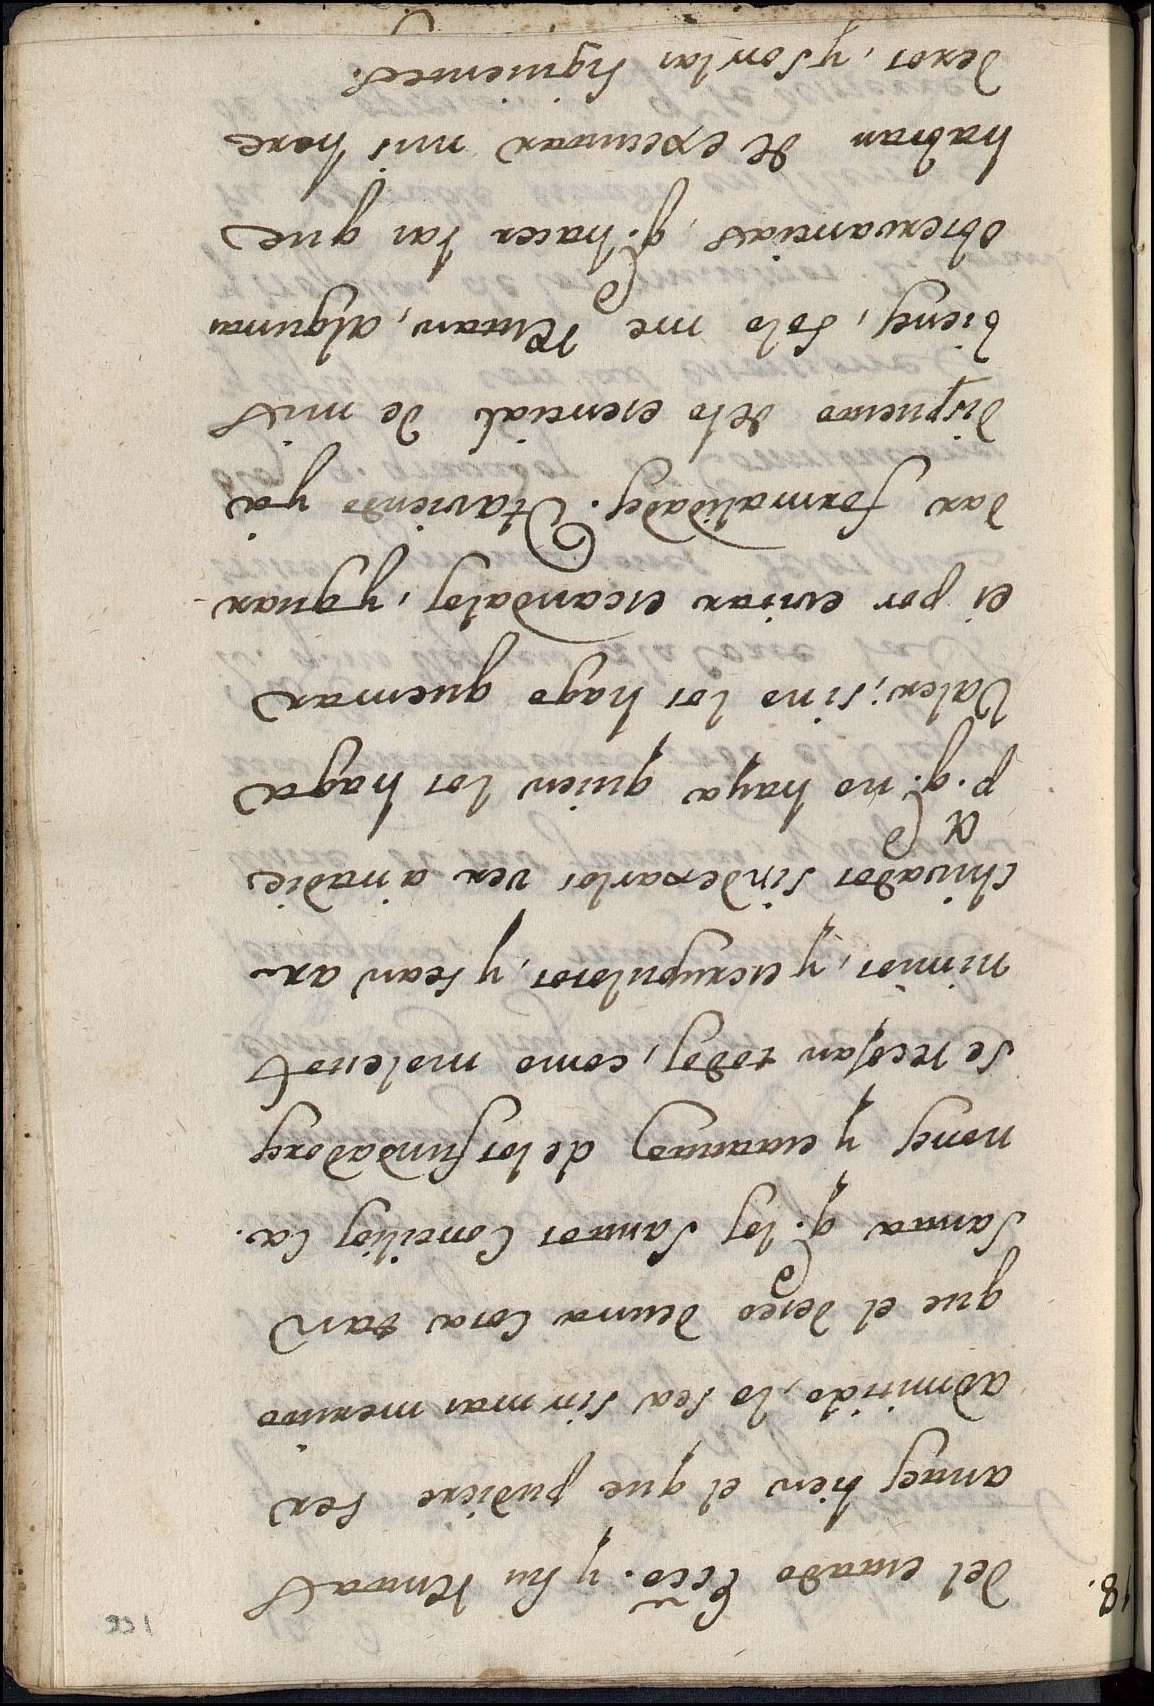 Del estado Ecc̃o. y su Rentas
antes bien el que pudiere ser
admitido, lo sea sin mas merito
que el deseo deuna Cosa tan
Santa q. los Santos Concilios Ca-
nones y estatutos delos fundadores
se recojan todos, como molestos
nimios, y escrupulosos, y sean ar-
chivados sindexarlos ver a nadie
pa. q. no haya quien los haga
Valer, sino los hago quemar
es por evitar escandalos, y guar-
dar formalidades. Haviendo ya
dispuesto delo esencial de mis
bienes, solo me restan, algunas
observancias q. hacer las que
habran de executar mis here
deros, y son las siguientes.